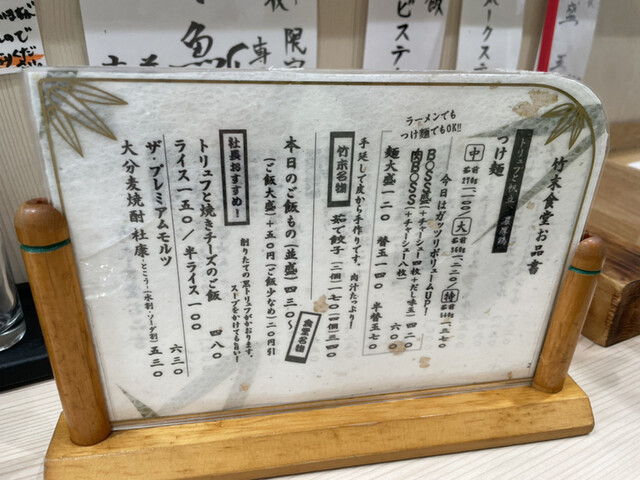 竹末食堂お品書
トリュフと帆立 真厚鶏
つけ麺
中
大
特
ラーメンでも
つけ麺でもOK!!
今日はガッツリボリュームUP!
BOSS盛(+チャーシュー四枚+だし味玉)四二〇
肉BOSS(+チャーシュー八枚) 六〇〇
麺大盛一二〇 替玉一四〇 半替玉七〇
手延しで皮から手作りです。肉汁たっぷり!
竹末名物
茹で餃子(二個)一七〇(四個)三四〇
食堂名物
本日のご飯もの(並盛)四三〇〜
(ご飯大盛)+五〇円(ご飯少なめ)二〇円引
社長おすすめ!
削りたての黒トリュフがかおります。
スープをかけても旨い!
トリュフと焼きチーズのご飯 四八〇
ライス一五〇/半ライス一〇〇
ザ・プレミアムモルツ 六三〇
大分麦焼酎 杜康-とこう-(水割・ソーダ割)五三〇
2